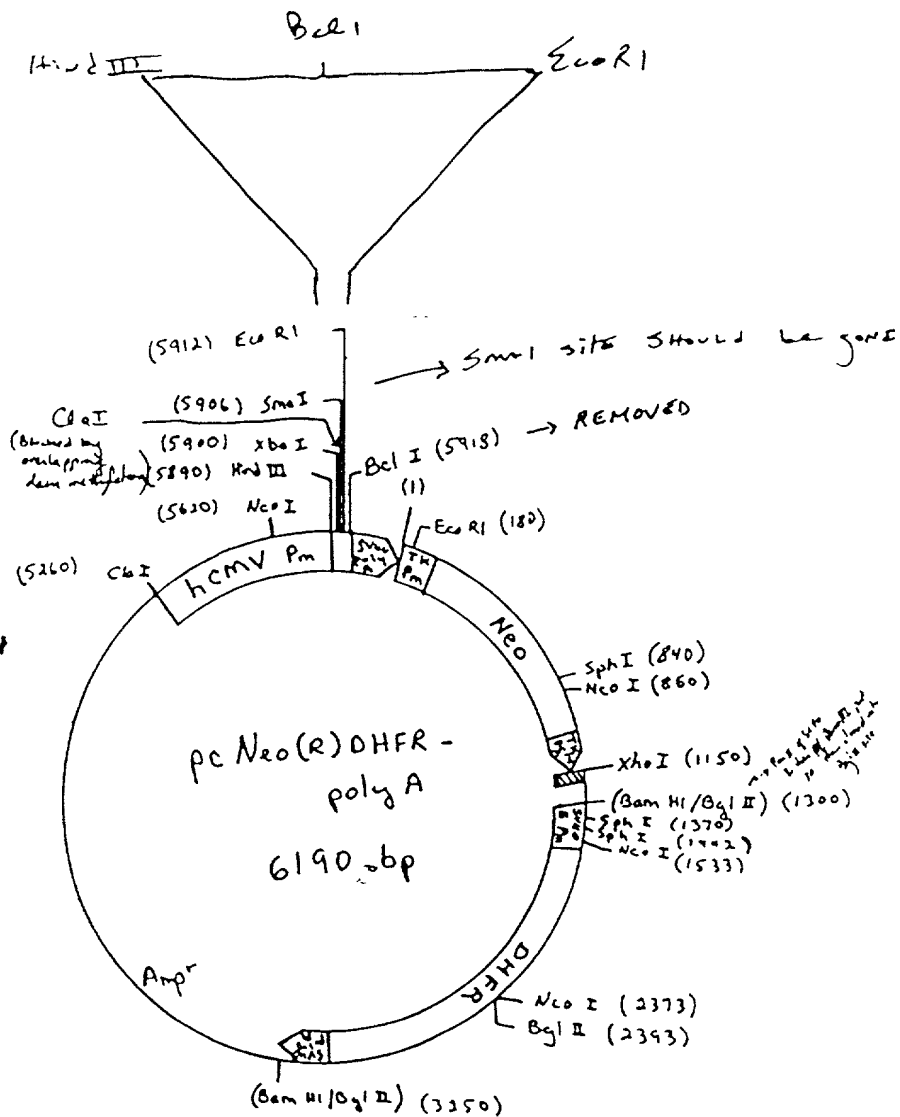 Bcl 1
Hind III
EcoR1
(5912) EcoR1
→ SmaI site SHould be gonE
(5906) SmaI
ClaI
(Blocked by
overlapping
dam methylation)
(5900) XbaI
(5890) Hind III
Bcl I (5918) → REMOVED
(1)
(5620) NcoI
EcoR1 (180)
(5260) ClaI
hCMV Pm
TK
Pm
Neo
SphI (840)
NcoI (860)
pcNeo(R)DHFR-
polyA
6190 bp
XhoI (1150)
(Bam H1/Bgl II) (1300)
SphI (1370)
SphI (1442)
NcoI (1533)
DHFR
Ampr
NcoI (2373)
Bgl II (2393)
(Bam H1/Bgl II) (3250)